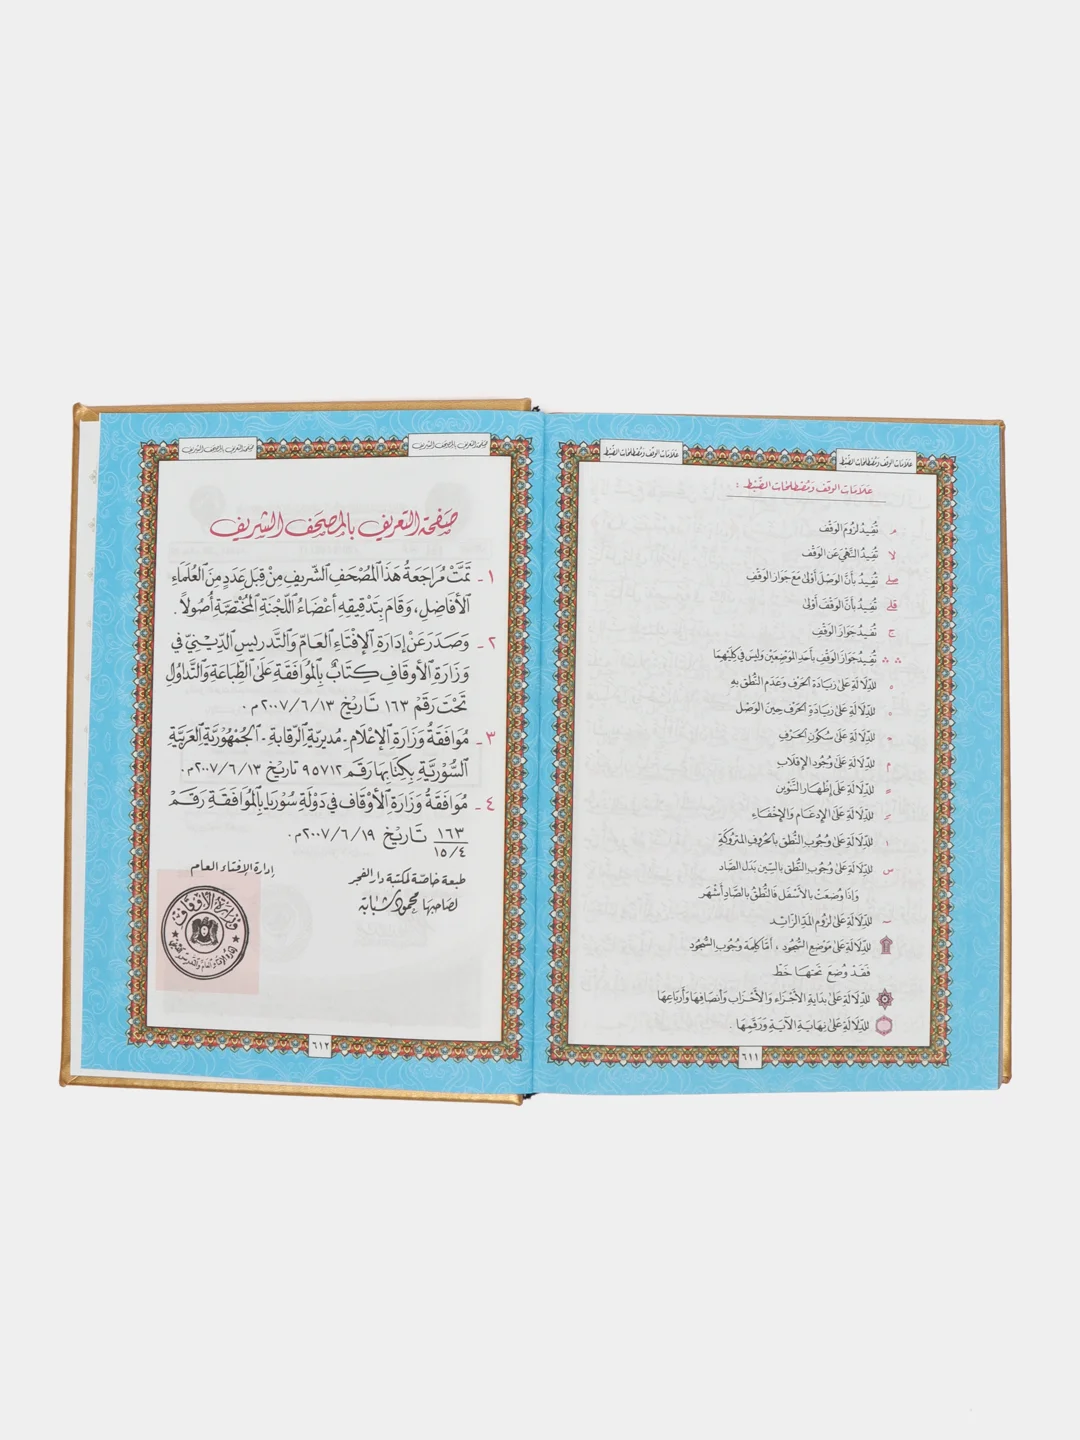 علامات الوقف ومصطلحات الضبط
علامات الوقف ومصطلحات الضبط
عَلَامَات الوَقْف وَمُصْطَلَحَات الضَّبْط :
مـ تُفِيدُ لُزُومَ الوَقْف
لا تُفِيدُ النَّهْيَ عَن الوَقْف
صلے تُفِيدُ بأَنَّ الوَصْلَ أَوْلَىٰ مَعَ جَوَازِ الوَقْفِ
قلے تُفِيدُ بأَنَّ الوَقْفَ أَوْلَىٰ
ج تُفِيدُ جَوَازَ الوَقْفِ
∴ ∴ تُفِيدُ جَوَازَ الوَقْفِ بأَحَدِ المَوْضِعَيْن وَلَيْسَ فِي كِلَيْهِمَا
ه للدِّلَالَةِ عَلَىٰ زِيَادَةِ الحَرْف وَعَدَمِ النُّطْق بِهِ
ه للدِّلَالَةِ عَلَىٰ زِيَادَةِ الحَرْف حِينَ الوَصْل
ح للدِّلَالَةِ عَلَىٰ سُكُون الحَرْفِ
م للدِّلَالَةِ عَلَىٰ وُجُودِ الإِقْلَاب
للدِّلَالَةِ عَلَىٰ إِظْهَارِ التَّنْوِين
للدِّلَالَةِ عَلَى الإِدْغَام وَالإِخْفَاءِ
ا للدِّلَالَةِ عَلَىٰ وُجُوبِ النُّطْق بالحُرُوفِ المَتْرُوكَةِ
س للدِّلَالَةِ عَلَىٰ وُجُوبِ النُّطْق بالسِّين بَدَل الصَّاد
وَإِذَا وُضِعَتْ بالأَسْفَل فَالنُّطْقُ بالصَّادِ أَشْهَر
~ للدِّلَالَةِ عَلَىٰ لزُومِ المَدِّ الزَّائِد
للدِّلَالَةِ عَلَىٰ مَوْضِعِ السُّجُودِ ، أَمَّا كَلِمَة وُجُوبِ السُّجُود
فَقَدْ وُضِعَ تَحْتَهَا خَطّ
للدِّلَالَةِ عَلَىٰ بدَايَةِ الأَجْزَاءِ وَالأَحْزَاب وَأَنْصَافِهَا وَأَرْبَاعِهَا
للدِّلَالَةِ عَلَىٰ نِهَايَةِ الآيَةِ وَرَقْمِهَا .
٦١١
صفحة التعريف بالمصحف الشريف
صفحة التعريف بالمصحف الشريف
صَفحة التعريف بالمصحف الشريف
١ - تَمَّتْ مُرَاجَعَةُ هَذَا المُصْحَفِ الشَّرِيفِ مِنْ قِبَلِ عَدَدٍ مِنَ العُلَمَاءِ
الأَفَاضِلِ، وَقَامَ بِتَدْقِيقِهِ أَعْضَاءُ اللَّجْنَةِ المُخْتَصَّةِ أُصُولاً .
٢ - وَصَدَرَ عَنْ إِدَارَةِ الإِفْتَاءِ العَامِّ وَالتَّدْرِيسِ الدِّينِيِّ فِي
وَزَارَةِ الأَوقَافِ كِتَابٌ بِالمُوَافَقَةِ عَلَىٰ الطِّبَاعَةِ وَالتَّدَاوُلِ
تَحْتَ رَقْمْ ١٦٣ تَارِيْخ ٢٠٠٧/٦/١٣م .
٣ - مُوَافَقَةُ وَزَارَةِ الإِعْلَامِ - مُدِيرِيَّةِ الرَّقَابَةِ - الجُمْهُورِيَّةِ العَرَبِيَّةِ
السُّورِيَّةِ بِكِتَابِهَا رَقَم ٩٥٧١٢ تاريخ ٢٠٠٧/٦/١٣م .
٤ - مُوَافَقَةُ وَزَارَةِ الأَوْقَافِ فِي دَوْلَةِ سُورِيَا بِالمُوَافَقَةِ رَقَمْ
١٦٣ / ١٥/٤ تَارِيْخ ٢٠٠٧/٦/١٩م .
طبعة خاصة لمكتبة دار الفجر
لصاحبها محمود شبابة
إدارة الإفتاء العام
وزارة الأوقاف
٦١٢